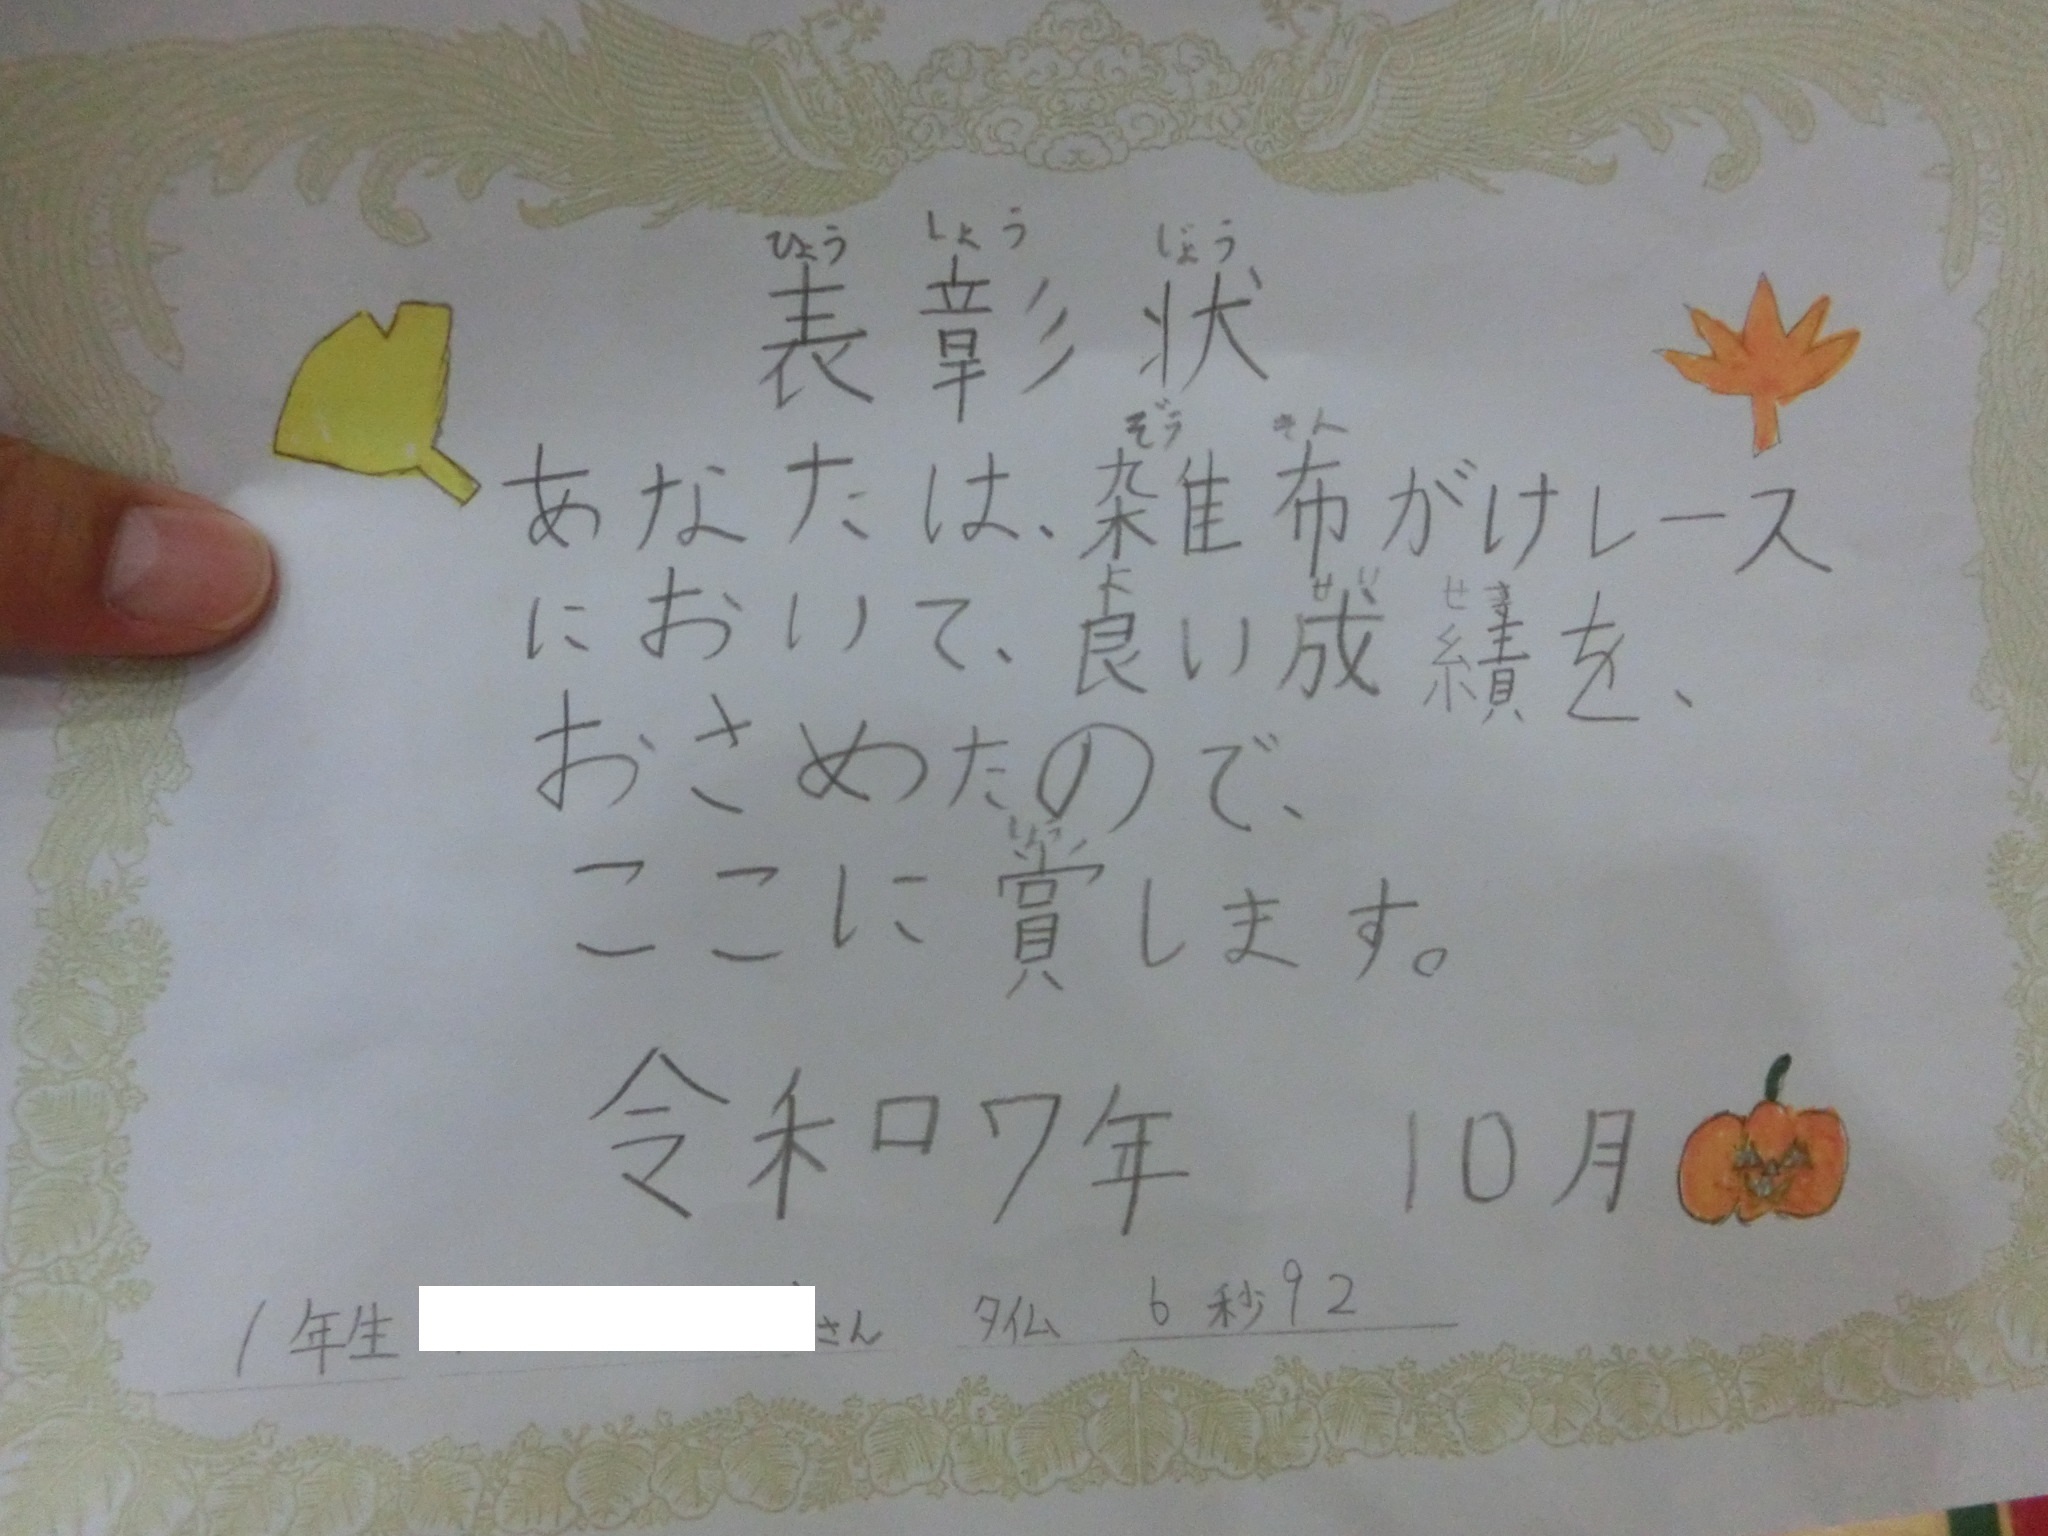 ひょう しょう じょう
表彰状
ぞう きん
あなたは、雑布がけレース
よ せい せき
において、良い成績を、
おさめたので、
しょう
ここに賞します。
令和7年 10月
1年生 さん タイム 6秒92